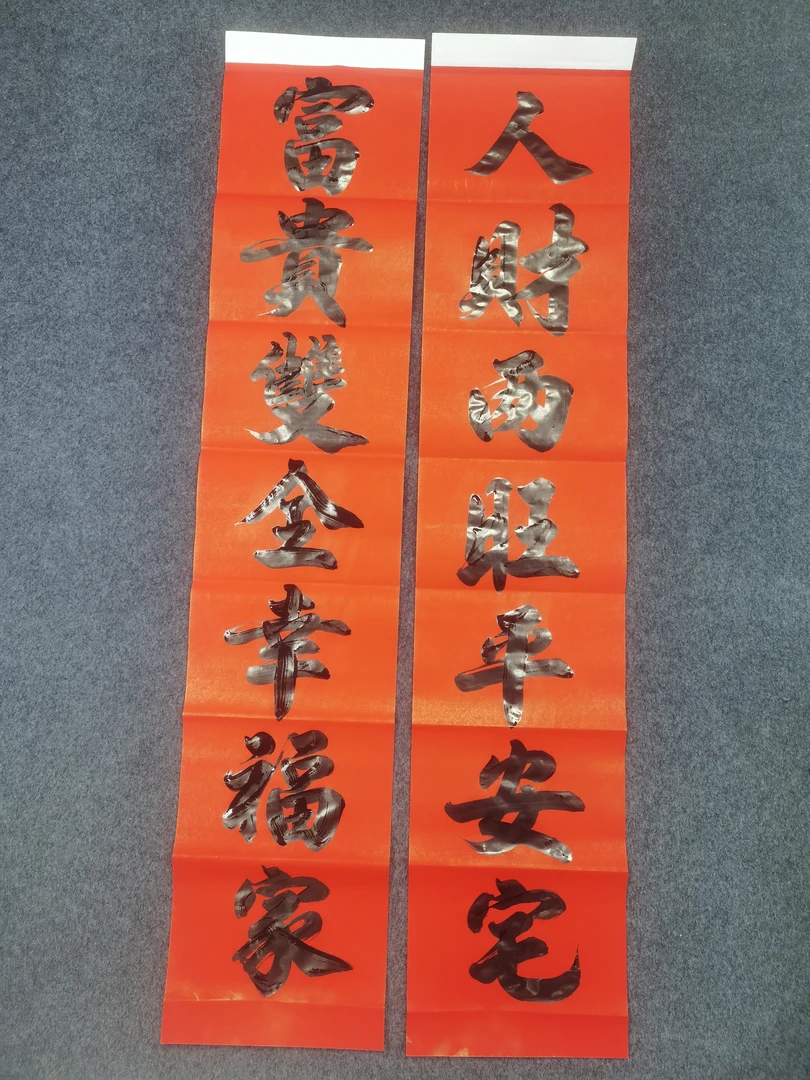 人財両旺平安宅
富貴雙全幸福家